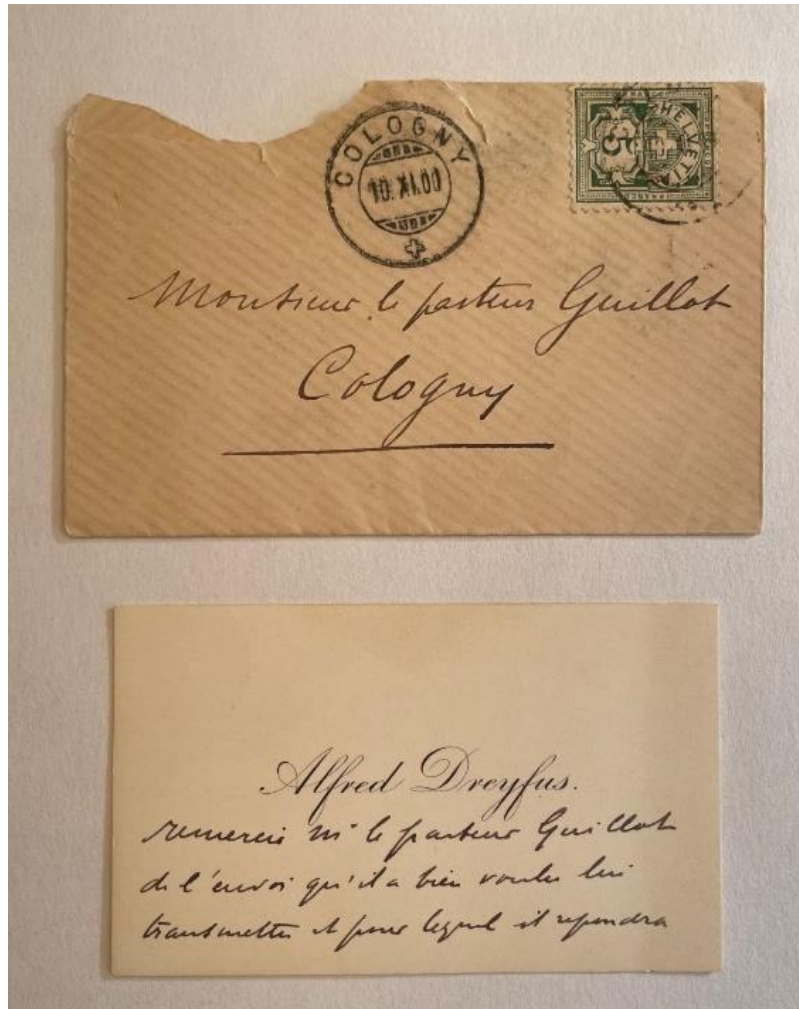 COLOGNY
10.XI.00
HELVETIA
5
FRANCO
Monsieur le pasteur Guillot
Cologny
Alfred Dreyfus.
remercie Mr le pasteur Guillot
de l'envoi qu'il a bien voulu lui
transmettre et pour lequel il repondra